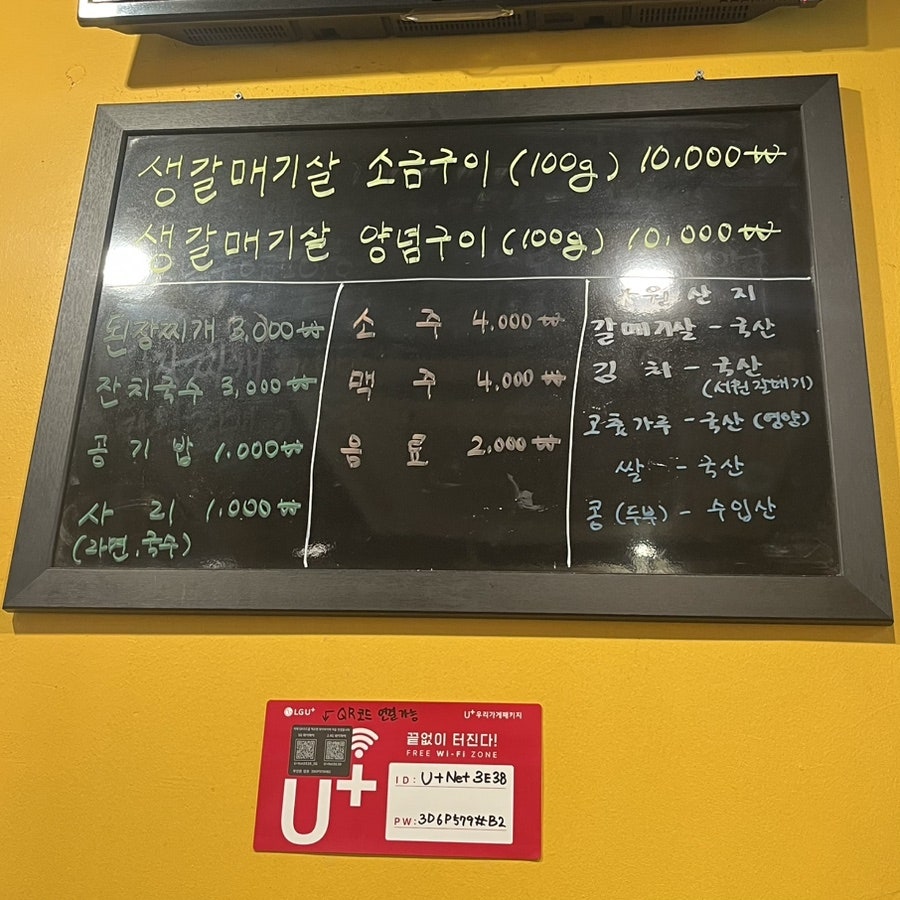 생갈매기살 소금구이 (100g) 10,000₩
생갈매기살 양념구이 (100g) 10,000₩
된장찌개 3,000₩
잔치국수 3,000₩
공기밥 1,000₩
사리 1,000₩
(라면, 국수)
소주 4,000₩
맥주 4,000₩
음료 2,000₩
원산지
갈매기살 - 국산
김치 - 국산
(서원갈매기)
고춧가루 - 국산 (영양)
쌀 - 국산
콩 (두부) - 수입산
LG U+ ↙ QR코드 연결가능
U+우리가게패키지
끝없이 터진다!
FREE WI-FI ZONE
U+
ID: U+Net3E38
PW: 3D6P579#B2